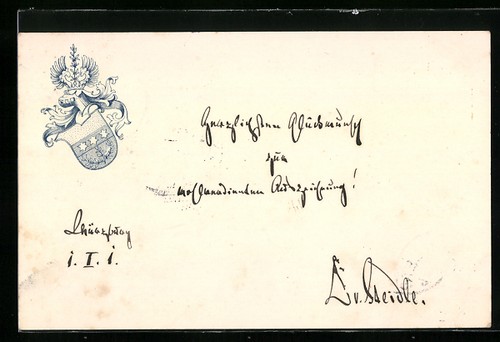 Herzlichsten Glückwunsch
zur
wohlverdienten Auszeichnung!
Würzburg
1. I. 1.
Dr v. Steidle.